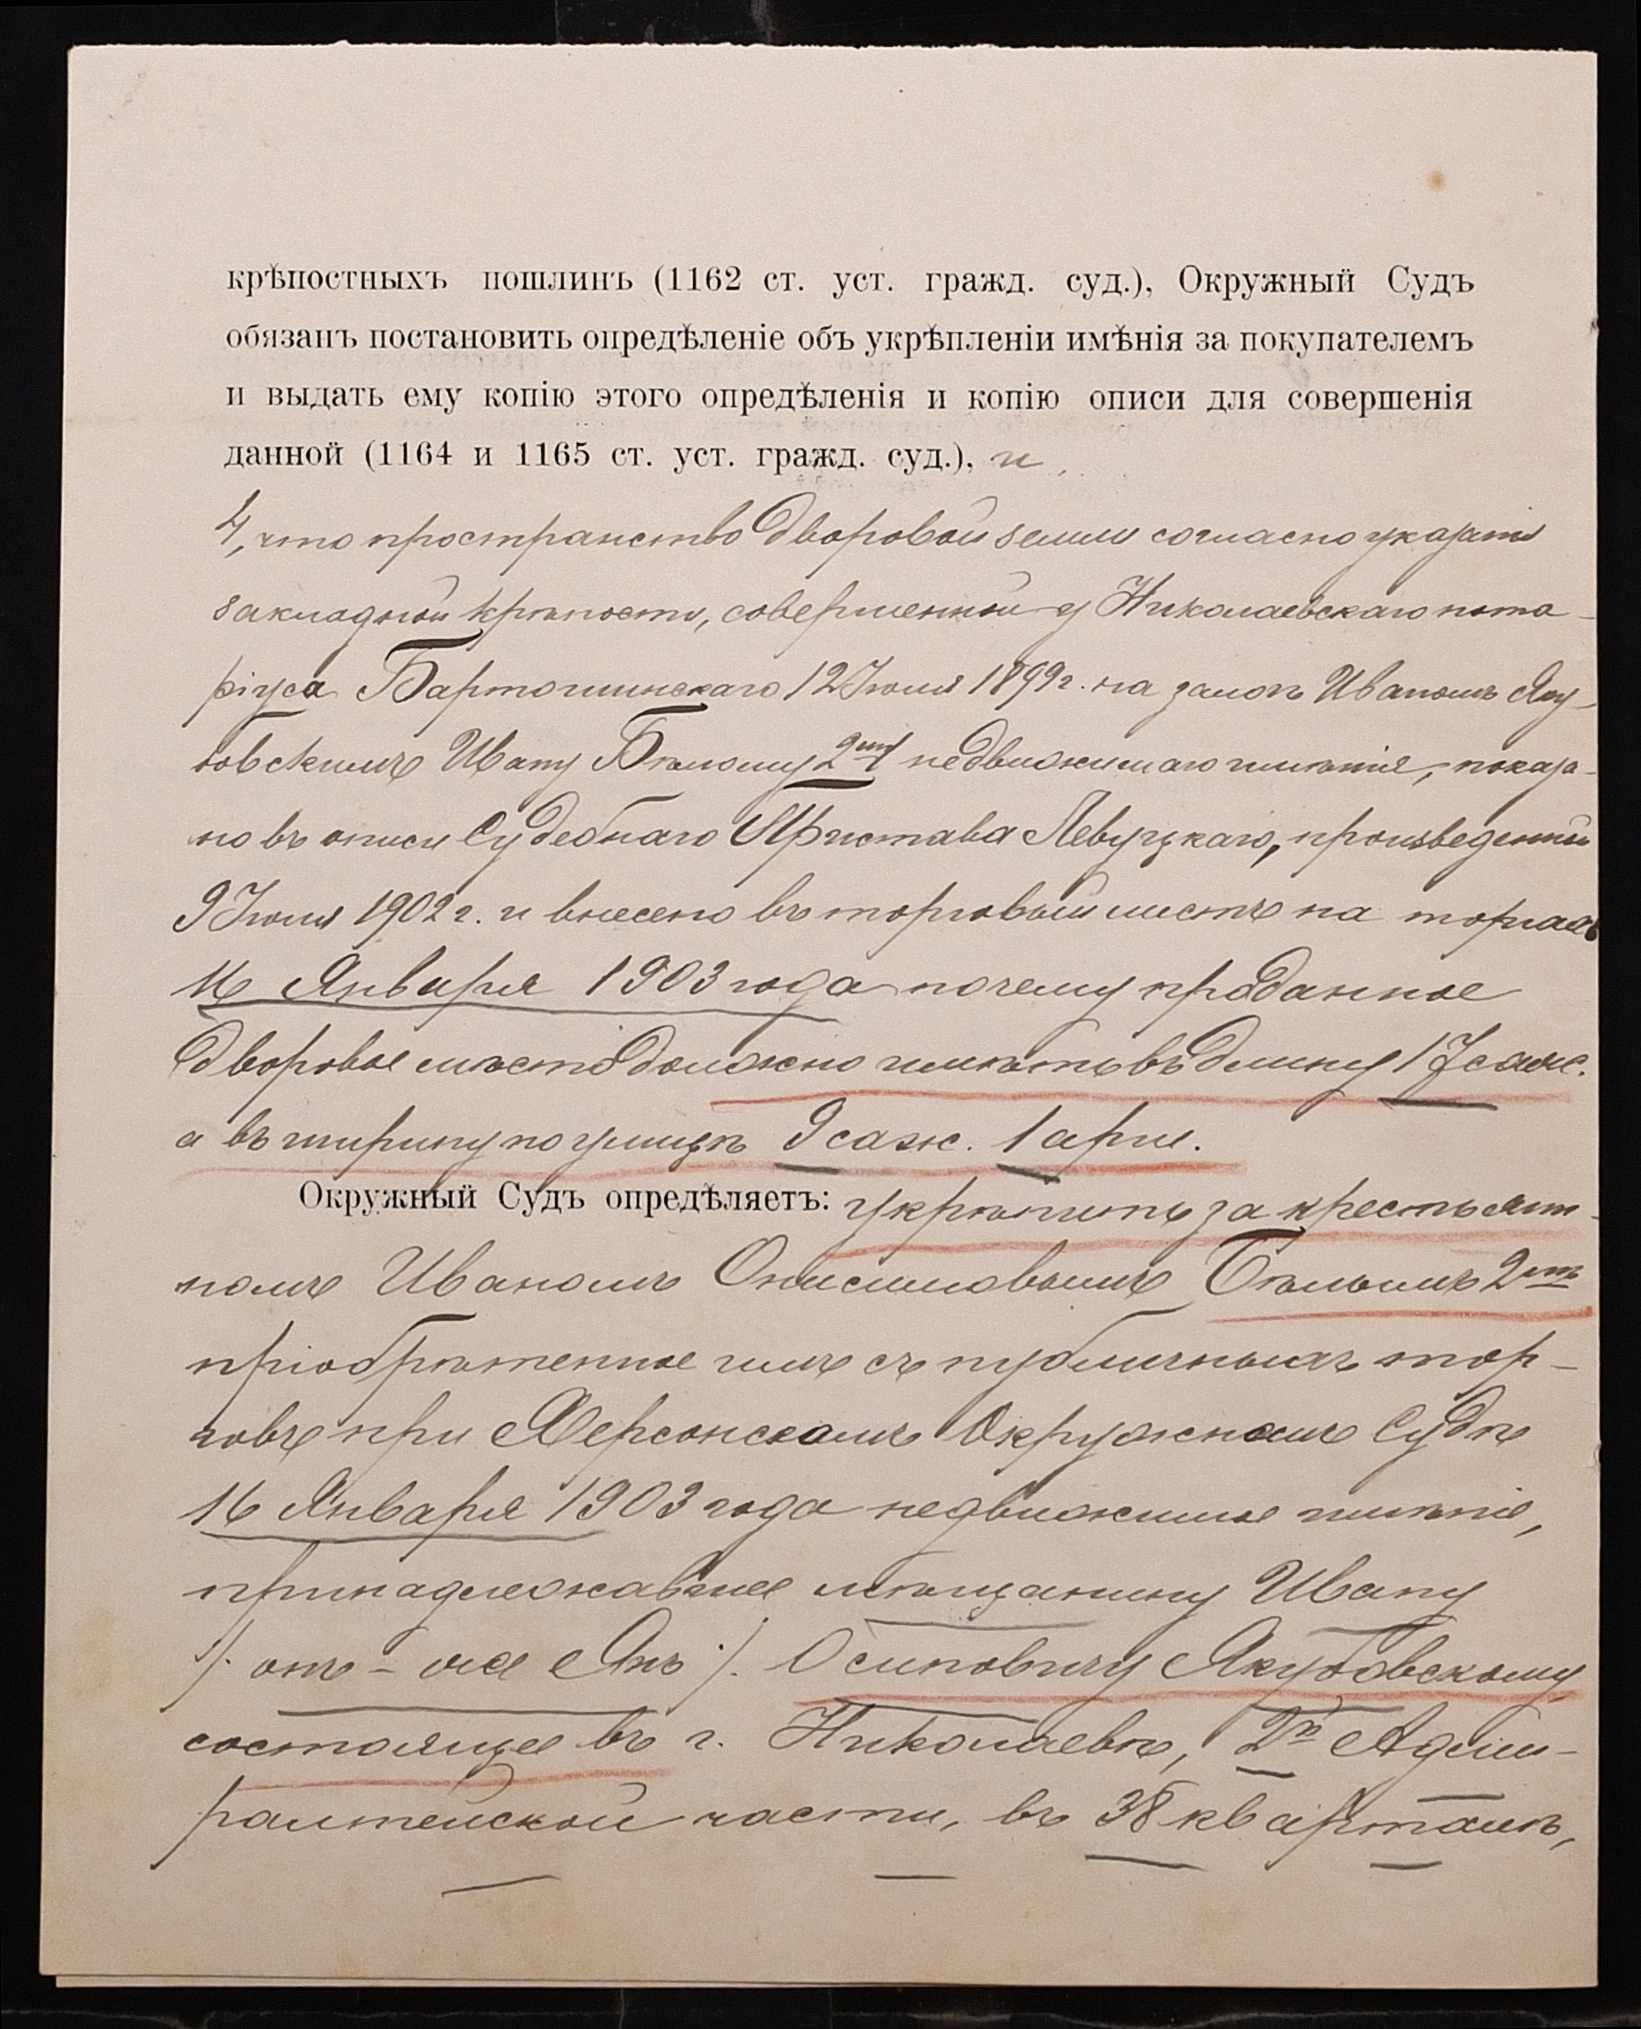 крѣпостныхъ пошлинъ (1162 ст. уст. гражд. суд.), Окружный Судъ
обязанъ постановить опредѣленіе объ укрѣпленіи имѣнія за покупателемъ
и выдать ему копію этого опредѣленія и копію описи для совершенія
данной (1164 и 1165 ст. уст. гражд. суд.), и
4, что пространство дворовой земли согласно указанія
закладной крѣпости, совершенной у Николаевскаго нота-
ріуса Бартошинскаго 12 Іюля 1899 г. на залогъ Иваномъ Яку-
бовскимъ Ивану Бѣлому 2му недвижимаго имѣнія, показа-
но въ описи Судебнаго Пристава Левуцкаго, произведенной
9 Іюля 1902 г. и внесено въ торговый листъ на торгахъ
16 Января 1903 года почему проданное
дворовое мѣсто должно имѣть въ длину 17 саж.
а въ ширину по улицѣ 9 саж. 1 арш.
Окружный Судъ опредѣляетъ: укрѣпить за крестьяни-
номъ Иваномъ Онисимовымъ Бѣлымъ 2мъ
пріобрѣтенное имъ съ публичныхъ тор-
говъ при Херсонскомъ Окружномъ Судѣ
16 Января 1903 года недвижимое имѣніе,
принадлежавшее мѣщанину Ивану
/. онъ-же Янъ ./. Осиповичу Якубовскому
состоящее въ г. Николаевѣ, 2й Адми-
ралтейской части, въ 38 кварталѣ,